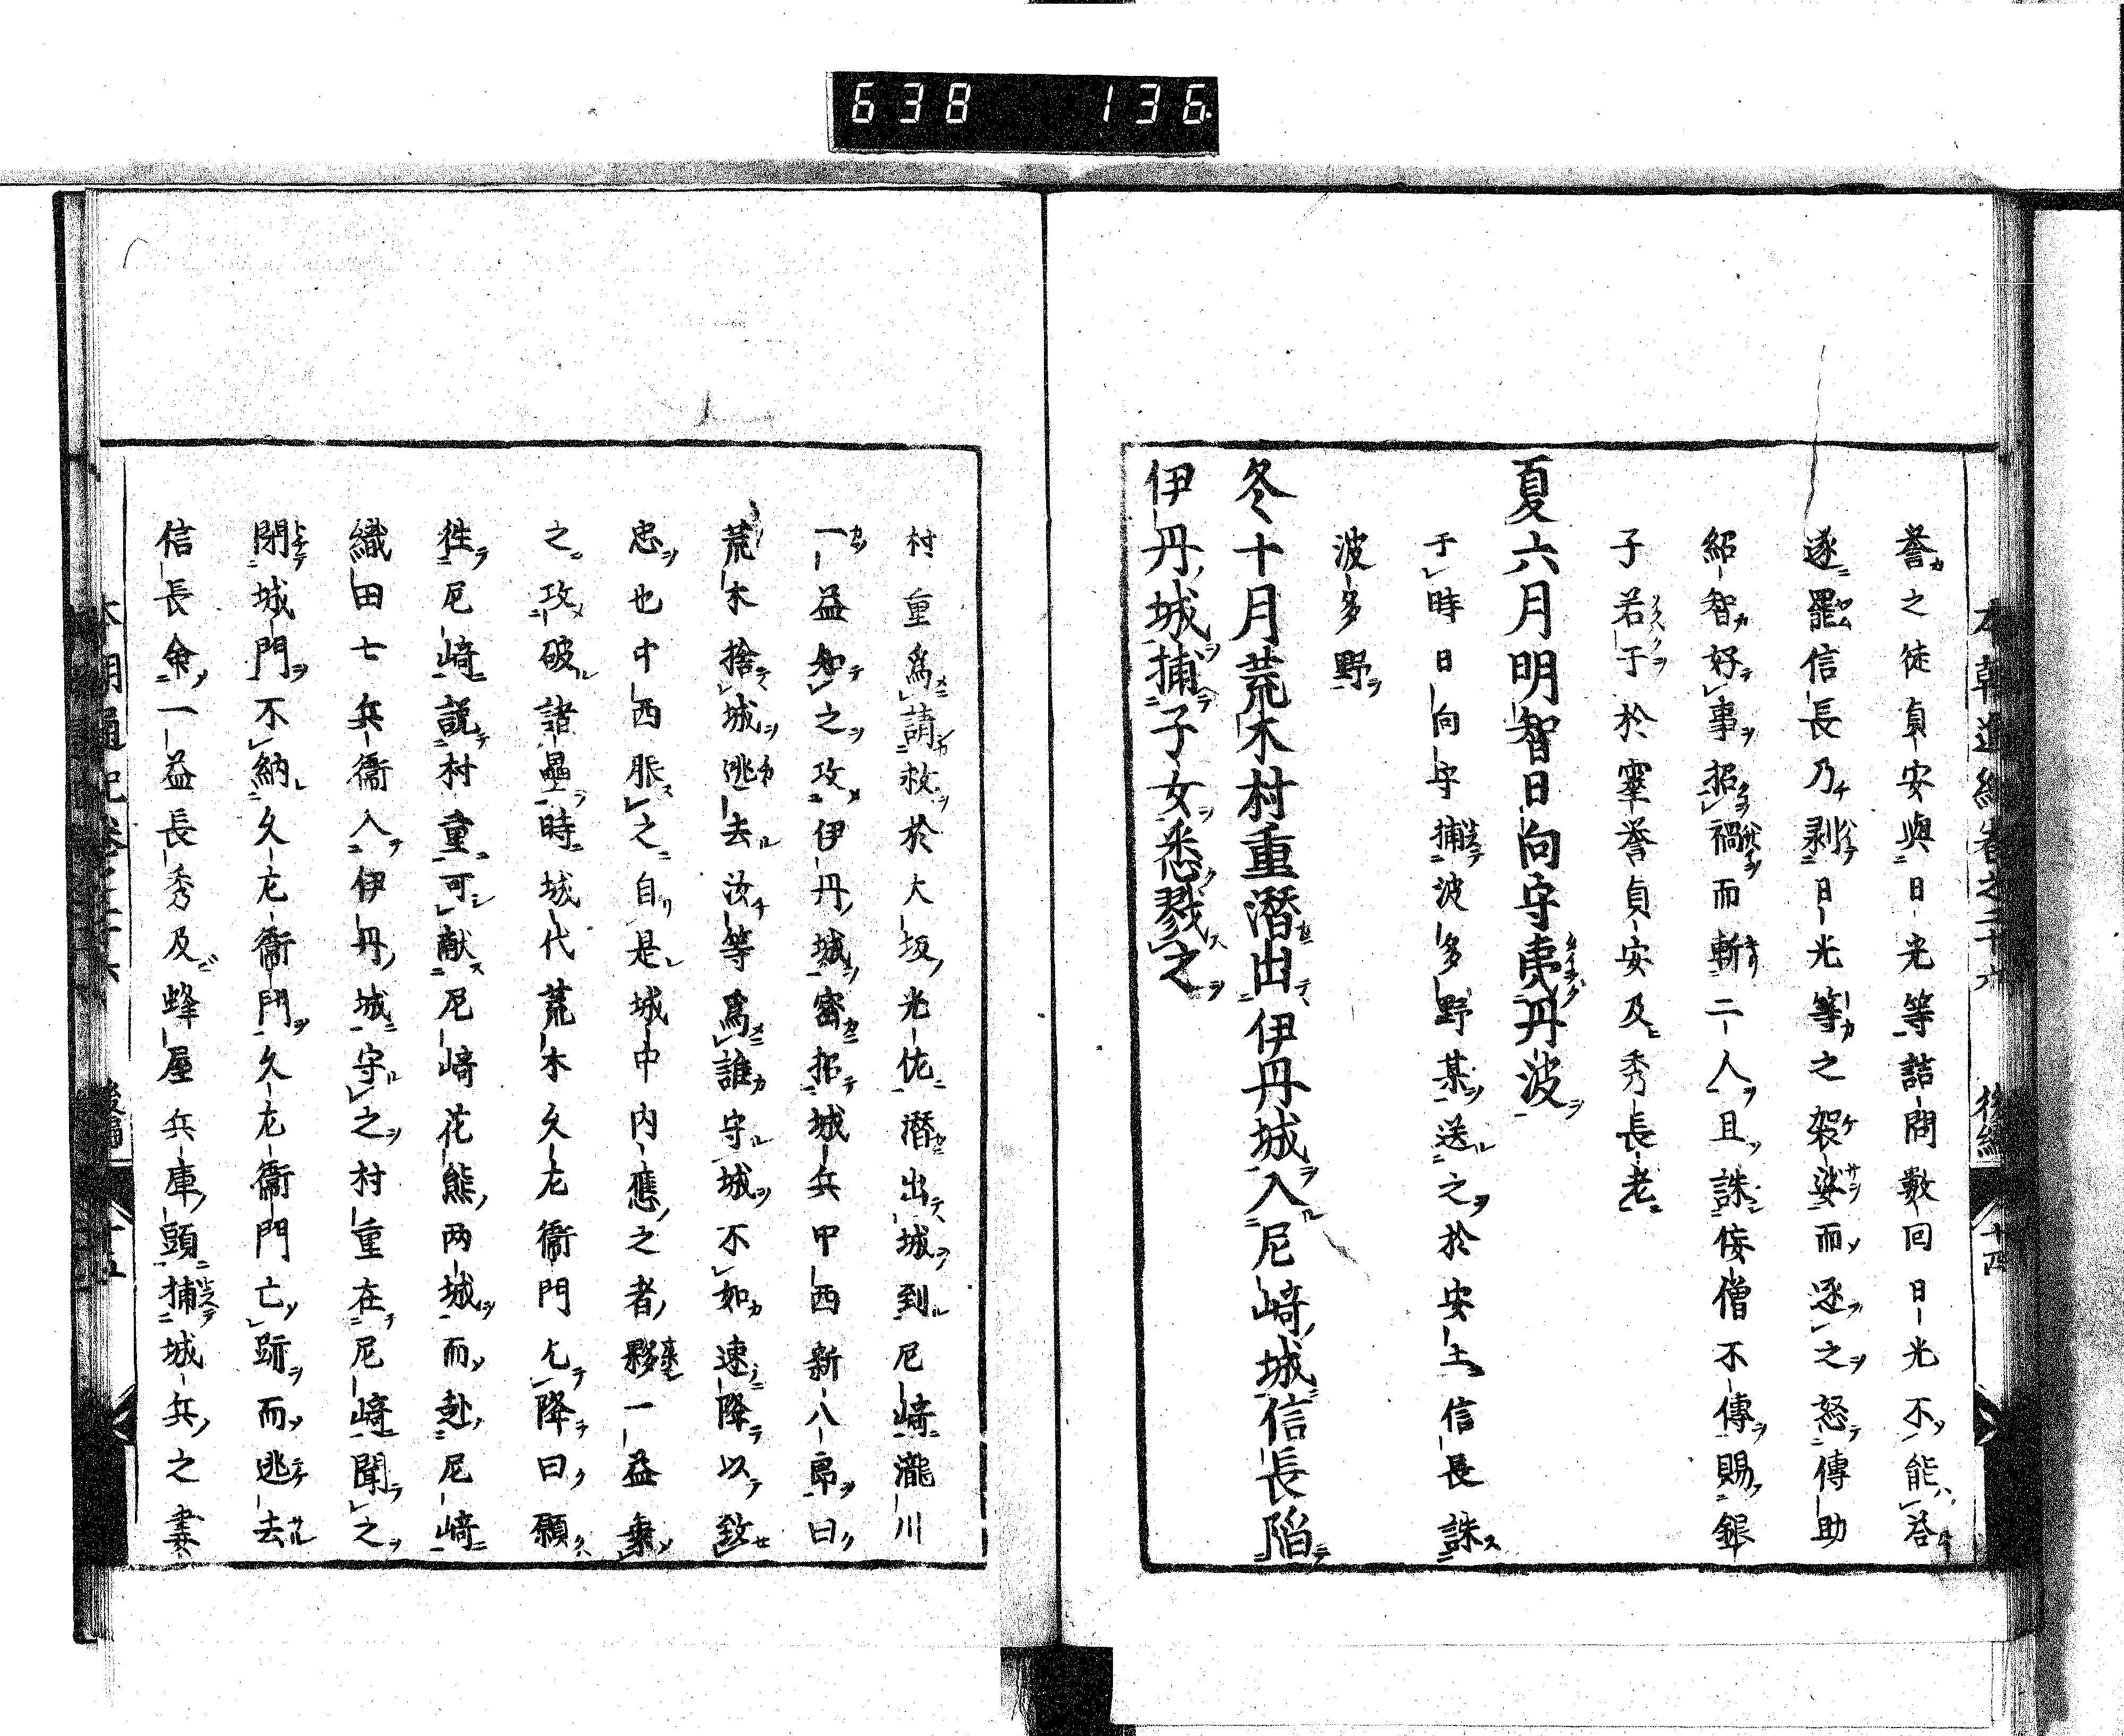 638 136
誉之徒貞安與日光等詰問數回日光不能荅
遂罷信長乃剥日光等之袈裟而逐之怒傳助
紹智好事招禍而斬二人且誅侫僧不傳賜銀
子若干於霊誉貞安及秀長老
夏六月明智日向守夷丹波
于時日向守捕波多野某送之於安土信長誅
波多野
冬十月荒木村重潜出伊丹城入尼﨑城信長陷
伊丹城捕子女悉戮之
村重爲請救於大坂光佐潜出城到尼﨑瀧川
一益知之攻伊丹城密招城兵中西新八郎曰
荒木捨城逃去汝等爲誰守城不如速降以致
忠也中西脤之自是城中内應之者夥一益乘
之攻破諸壘時城代荒木久左衞門乞降曰願
徃尼﨑説村重可献尼﨑花熊两城而赴尼﨑
織田七兵衞入伊丹城守之村重在尼﨑聞之
閉城門不納久左衞門久左衞門亡跡而逃去
信長命一益長秀及蜂屋兵庫頭捕城兵之妻